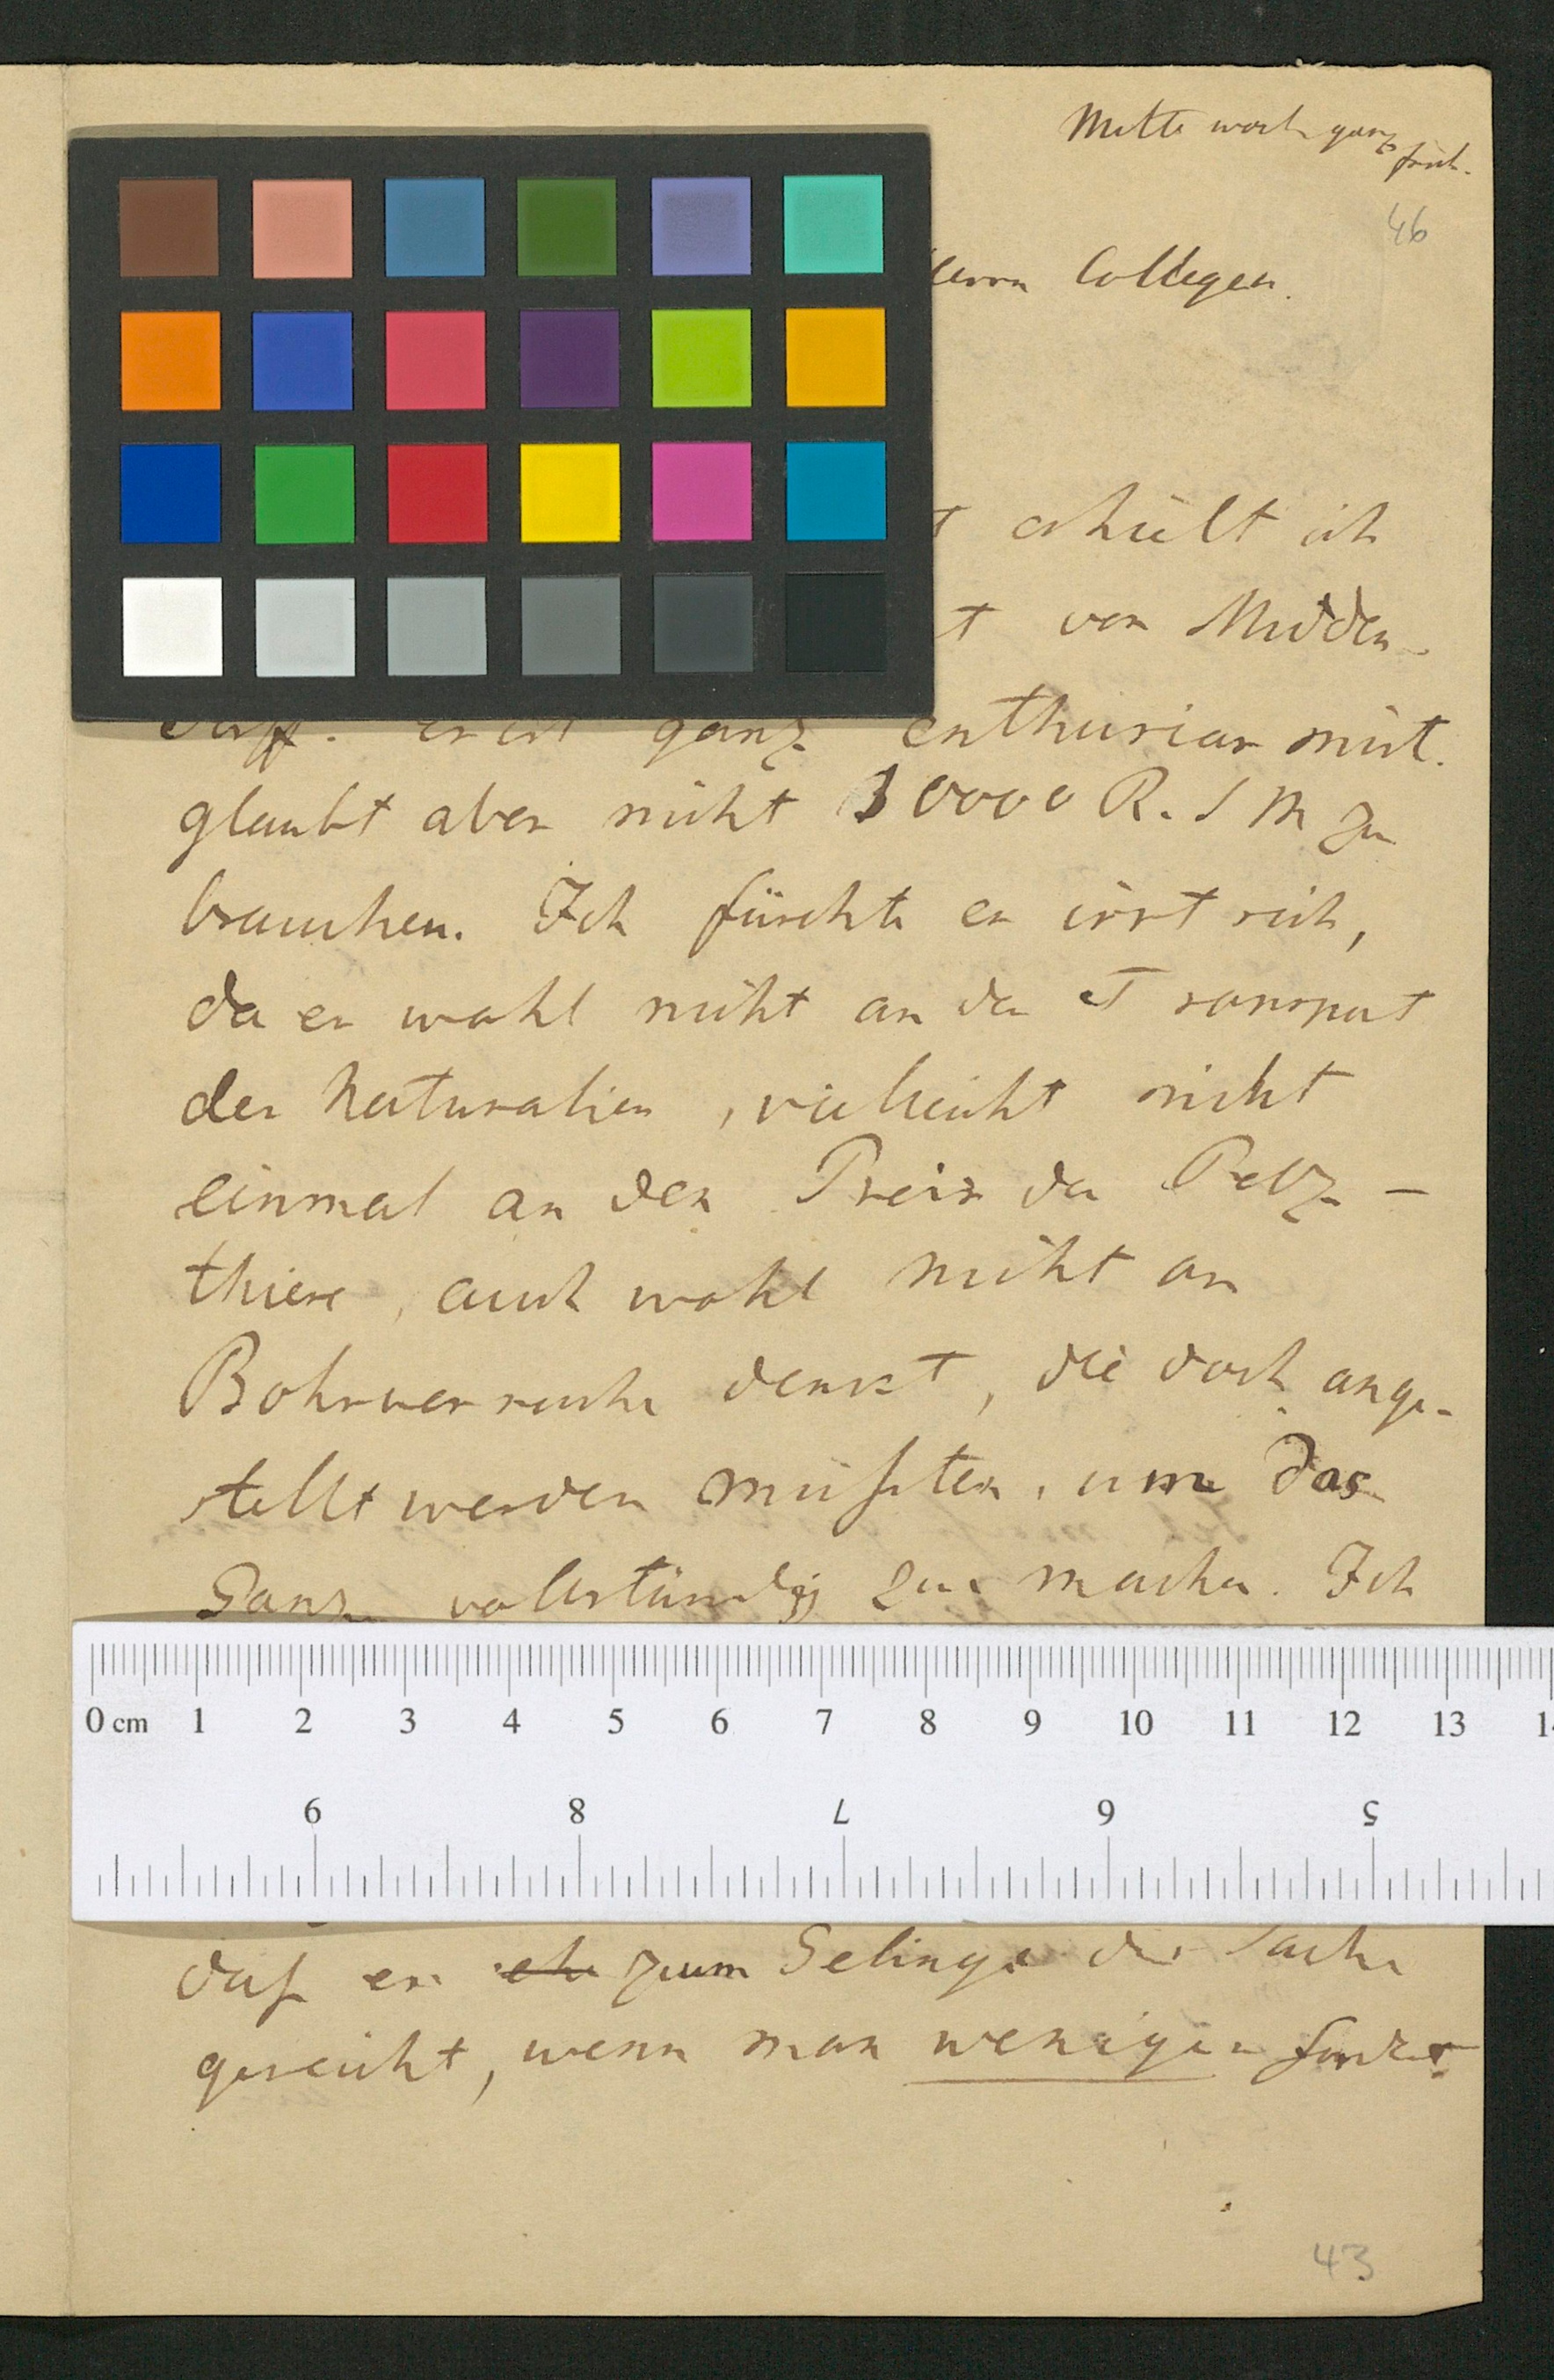 Mitte woch ganz
früh.
46
Herrn Collegen.
t erhielt ich
t von Midden-
dorff. Er ist ganz enthusiasmirt.
glaubt aber nicht 30000 R. S M zu
brauchen. Ich fürchte er irrt sich,
da er wohl nicht an den Transport
der Naturalien, vielleicht nicht
einmal an den Preis der Pelz-
thiere, auch wohl nicht an
Bohrversuche denkt, die doch ange-
stellt werden müssten, um das
Ganze vollständig zu machen. Ich
0 cm 1 2 3 4 5 6 7 8 9 10 11 12 13
9 8 7 6 5
daß er ehe zum Gelingen der Sache
gereicht, wenn man weniger fordert
43